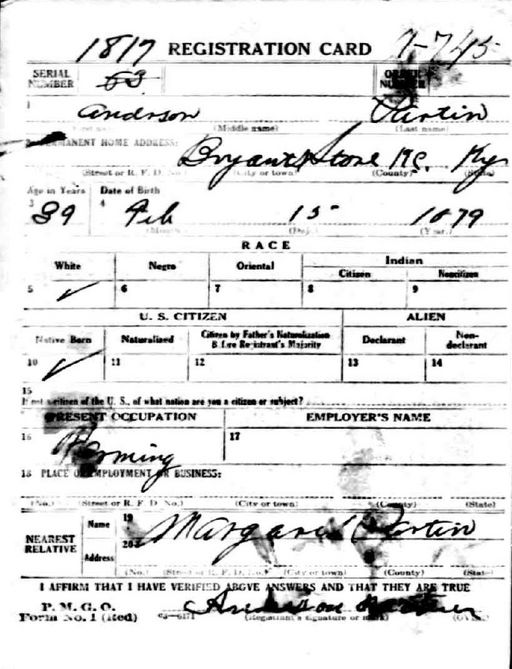 1817 REGISTRATION CARD
SERIAL NUMBER 63 ORDER NUMBER
1 Anderson
(Middle name) (Last name)
PERMANENT HOME ADDRESS:
Bryants Store Ky.
(Street or R. F. D. No.) (City or town) (County) (State)
Age in Years Date of Birth
3 39 4 Feb 15 1879
(Month) (Day) (Year)
RACE
White Negro Oriental Indian
Citizen Noncitizen
5 ✓ 6 7 8 9
U. S. CITIZEN ALIEN
Native Born Naturalized Citizen by Father's Naturalization Before Registrant's Majority Declarant Non-declarant
10 ✓ 11 12 13 14
15
If not a citizen of the U. S., of what nation are you a citizen or subject?
PRESENT OCCUPATION EMPLOYER'S NAME
16 Farming 17
18 PLACE OF EMPLOYMENT OR BUSINESS:
(No.) (Street or R. F. D. No.) (City or town) (County) (State)
NEAREST RELATIVE Name 19 Margaret
Address 20
(No.) (Street or R. F. D. No.) (City or town) (County) (State)
I AFFIRM THAT I HAVE VERIFIED ABOVE ANSWERS AND THAT THEY ARE TRUE
P. M. G. O.
Form No. 1 (Red) 03-6171 Anderson
(Registrant's signature or mark) (OVER)